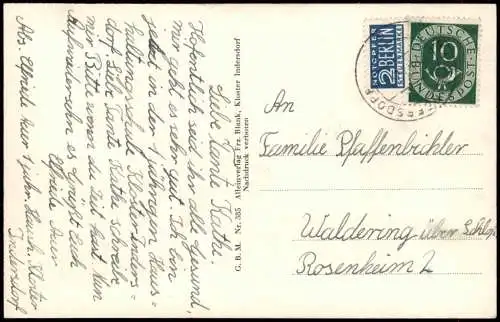 Liebe Tante Kathi.
Hofentlich seid ihr alle Gesund,
mir geht es sehr gut. Ich bin
jetzt in der 1 jährigen Haus=
haltungsschule Kloster Inders=
dorf. Liebe Tante Kathi schreibe
mir Bitte wenn du Zeit hast. Nun
Aufwiedersehn es grüßt Euch
Elfriede Auer
Abs. Elfriede Auer 1 jähr. Haush. Kloster
Indersdorf
G. B. M. Nr. 355 Alleinverlag Frz. Blank, Kloster Indersdorf
Nachdruck verboten
NOTOPFER
2 BERLIN
STEUERMARKE
DEUTSCHE
10
BUNDESPOST
An
Familie Pfaffenbichler
Waldering über
Rosenheim 2